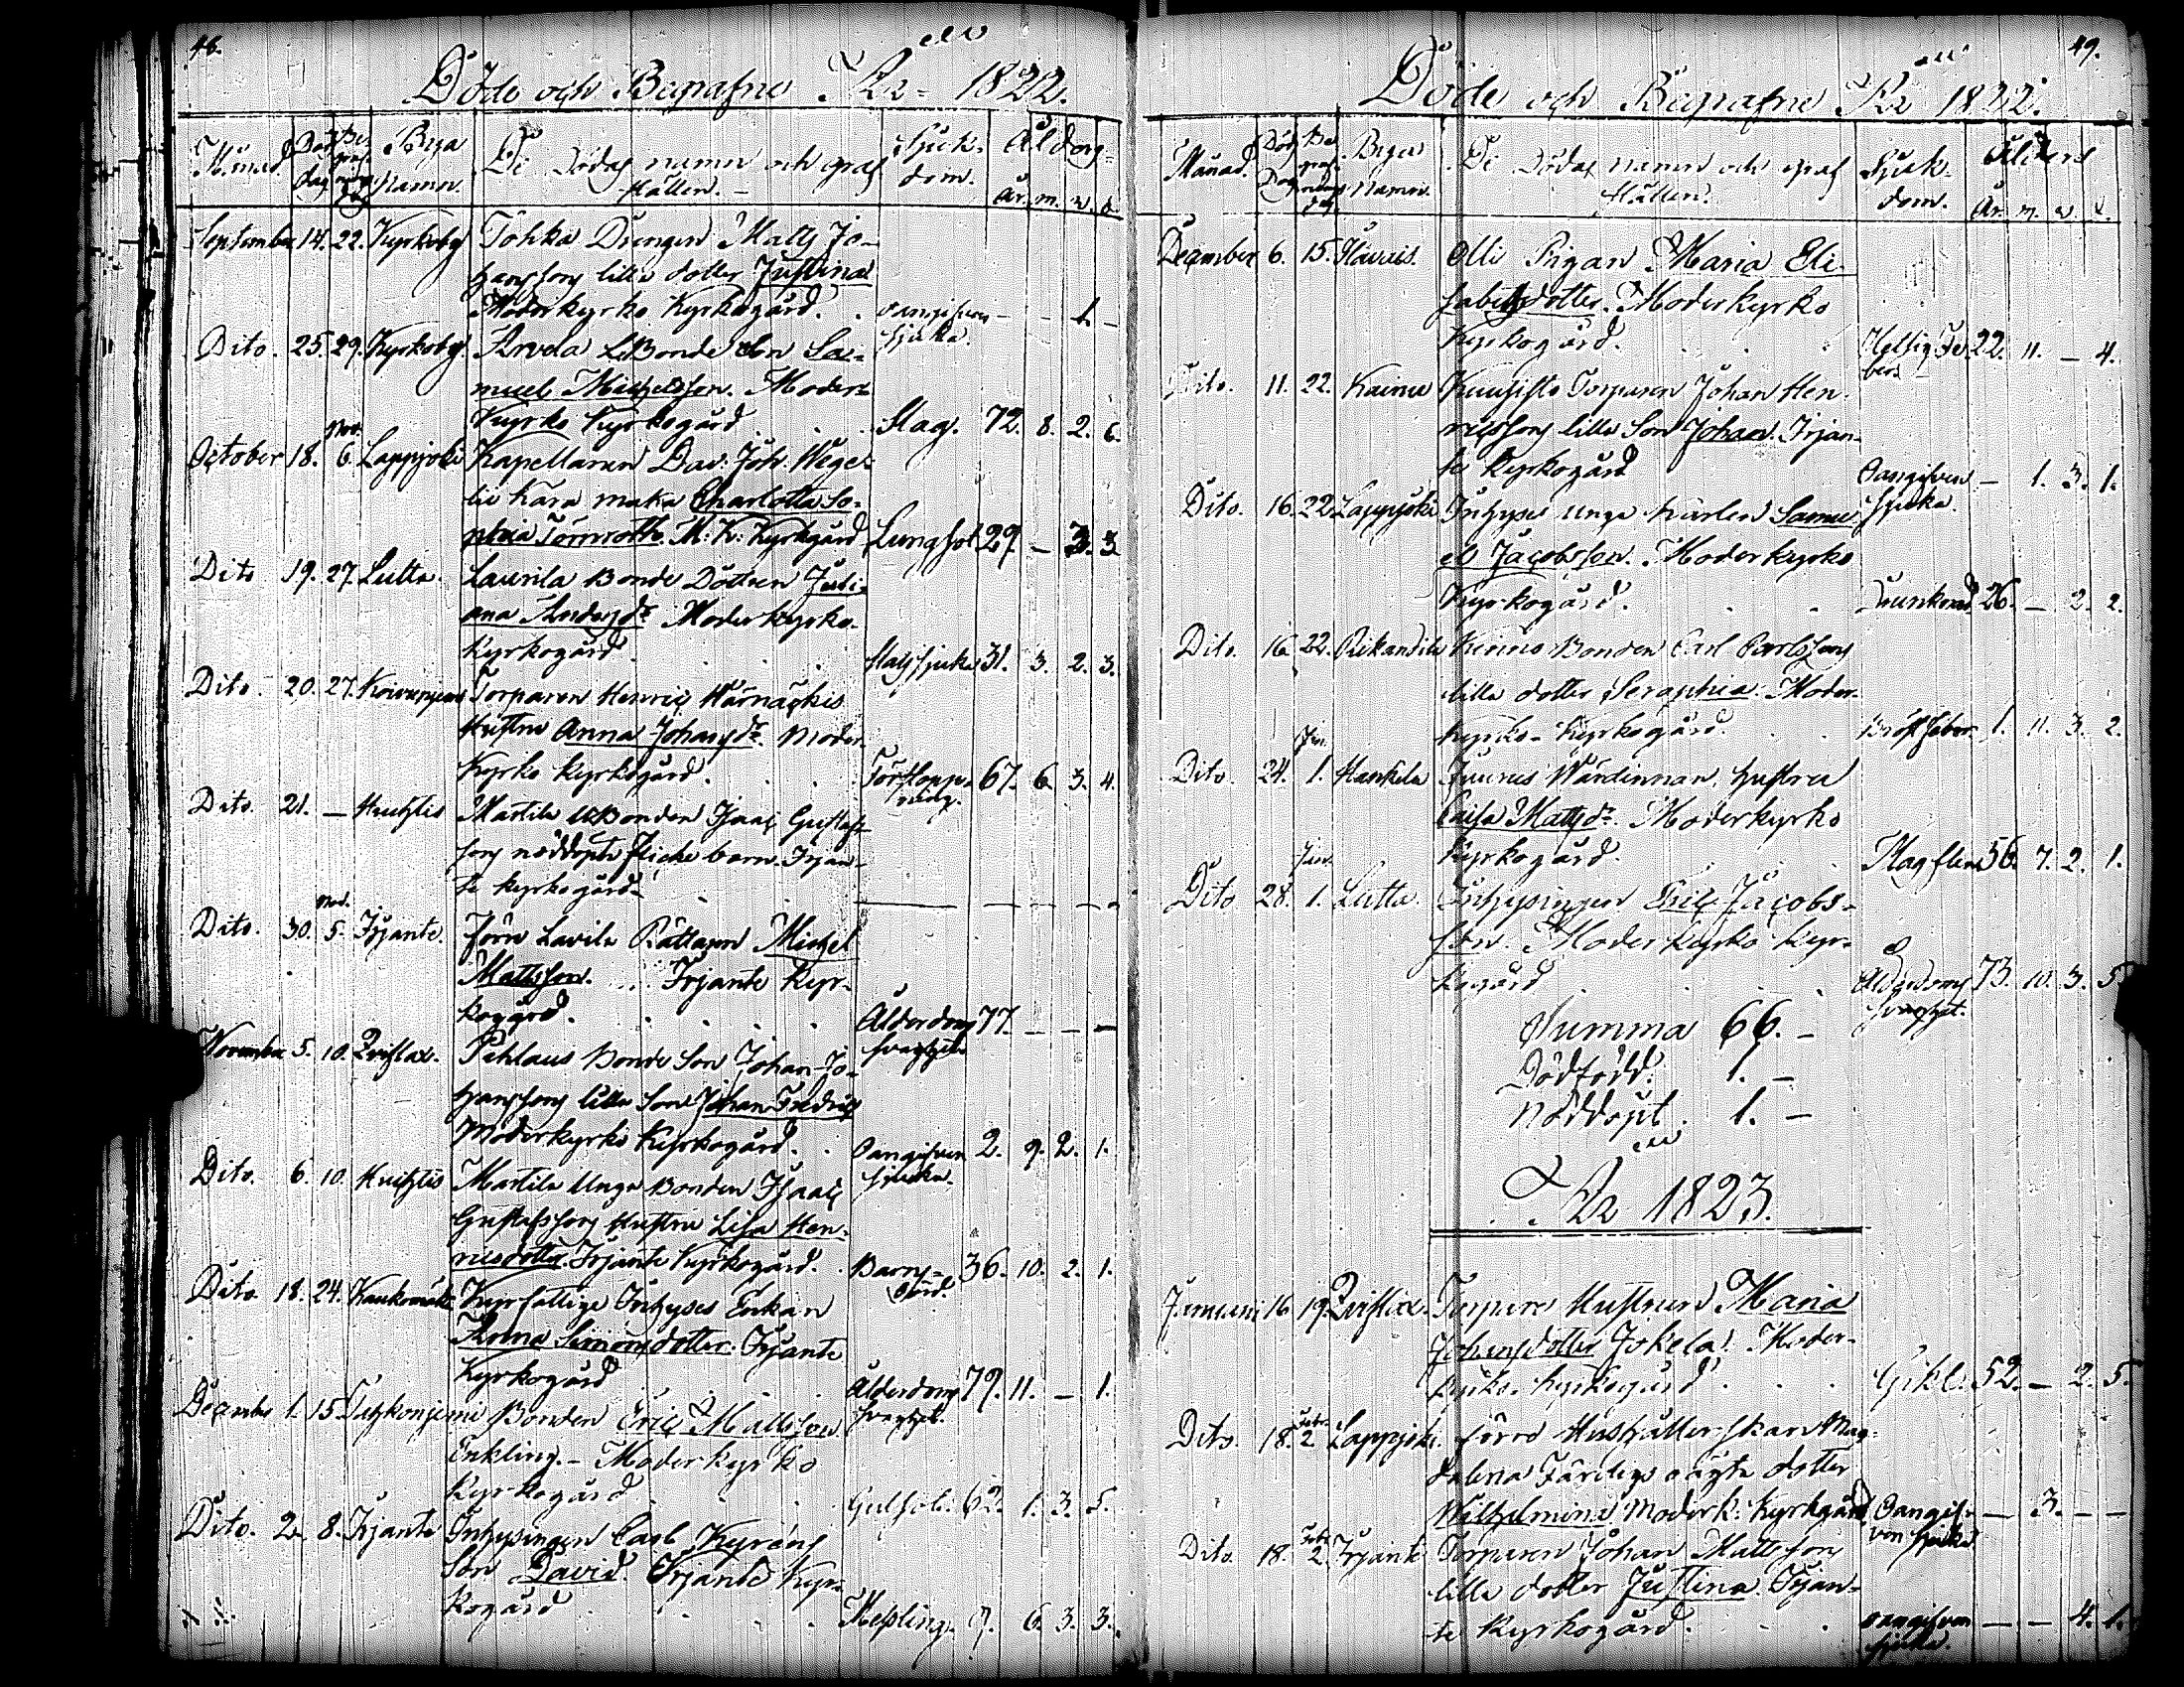 48.
Döde och Begrafne År 1822.
Månad. Död dag Begrafnings dag Byia namn. De Dödas namn och graf ställen. Sjuk-dom. Ålders År. m. v. d.
September 14. 22. Kyrkoby Tohka Drengen Matts Jo-
hanssons lilla dotter Justina
Moderkyrko Kyrkogård. oangifven sjuka - - 1. -
Dito. 25. 29. Kyrkoby. Arvela Bonde Son Sa-
muel Michelsson. Moder-
Kyrko Kyrkogård Slag. 72. 8. 2. 6.
October 18. Nov. 6. Lappjoki Kapellanen Dav: Joh: Wege-
lii kära maka Charlotta So-
phia Törnroth. M: K: Kyrkogård Lungsot 29. - 3. 3
Dito 19. 27. Lutta. Laurila Bonde Dottren Juli-
ana Andersdr Moderkyrko-
Kyrkogård. Halssjuka 31. 3. 2. 3.
Dito. 20. 27. Torparen Henric Härnäckis
Hustru Anna Johansdr. Moder-
Kyrko Kyrkogård. Förstopp-ning. 67. 6. 3. 4.
Dito. 21. - Huhtis Martila Bonden Isaac Gustafs-
sons nöddöpta Flicke barn. Irjan-
te kyrkogård - - - - -
Dito. 30. Nov. 5. Irjante. förra Lavila Rättaren Michel
Mattsson. Irjante Kyr-
kogård. Ålderdoms svaghet 77. - - -
November 5. 10. Qvistlax. Pehlaus Bonde Son Johan Jo-
hanssons lilla Son Johan Fredric
Moderkyrko Kyrkogård. Oangifven sjuka. 2. 9. 2. 1.
Dito. 6. 10. Huhtis Martila Unga Bonden Isaac
Gustafssons Hustru Lisa Hen-
ricsdotter. Irjante Kyrkogård. Barns-börd. 36. 10. 2. 1.
Dito. 18. 24. Kyrfattige Inhyses Enkan
Anna Simonsdotter. Irjante
Kyrkogård Ålderdoms svaghet. 79. 11. - 1.
December 1. 15. Bonden Eric Mattsson
Enkling. - Moderkyrko
Kyrkogård. Gulsot. 62. 1. 3. 5.
Dito. 2. 8. Irjante Inhysingen Carl
Son David. Irjante Kyr-
kogård Messling. 9. 6. 3. 3.
49.
Döde och Begrafne År 1822.
Månad. Död Dag Begrafnings dag. Byia namn. De Dödas namn och graf ställen. Sjuk-dom. Ålders År. m. v. d.
December 6. 15. Olli Pigan Maria Eli-
sabetsdotter. Moderkyrko
Kyrkogård. Hetsig Fe-ber. 22. 11. - 4.
Dito. 11. 22. Kainu Kuusisto Torparen Johan Hen-
ricssons lilla Son Johan. Irjan-
te Kyrkogård Oangifven sjuka. - 1. 3. 1.
Dito. 16. 22. Lappjoki Inhyses unga karlen Samu-
el Jacobsson. Moderkyrko
Kyrkogård. Drunknad 26. - 2. 2.
Dito. 16. 22. Rikandila Bonden Carl Carlssons
lilla dotter Seraphia. Moder-
kyrko Kyrkogård. Bröstfeber 1. 11. 3. 2.
Dito. 24. Jan. 1. Hankila Juurus Wärdinnan, hustru
Caisa Mattsdr. Moderkyrko
kyrkogård. 56. 7. 2. 1.
Dito 28. Jan. 1. Lutta Inhysingen Eric Jacobs-
son. Moderkyrko Kyr-
kogård Ålderdoms svaghet. 73. 10. 3. 5.
Summa 66. -
Dödfödd. 1. -
Nöddöpt. 1. -
År 1823.
Januarii 16 19. Qvistlax. Torpare Hustrun Maria
Johansdotter Jokela. Moder-
kyrko Kyrkogård. 52. - 2. 5.
Dito. 18. Febr. 2 Lappjoki. förra Hushållerskan Mag-
dalena Färdigs oägta dotter
Wilhelmina Moderk: Kyrkogård. Oangif-ven sjuka - 3. - -
Dito. 18. Febr. 2. Irjante Torparen Johan Mattssons
lilla dotter Justina. Irjan-
te Kyrkogård. oangifven sjuka. - - 4. 1.